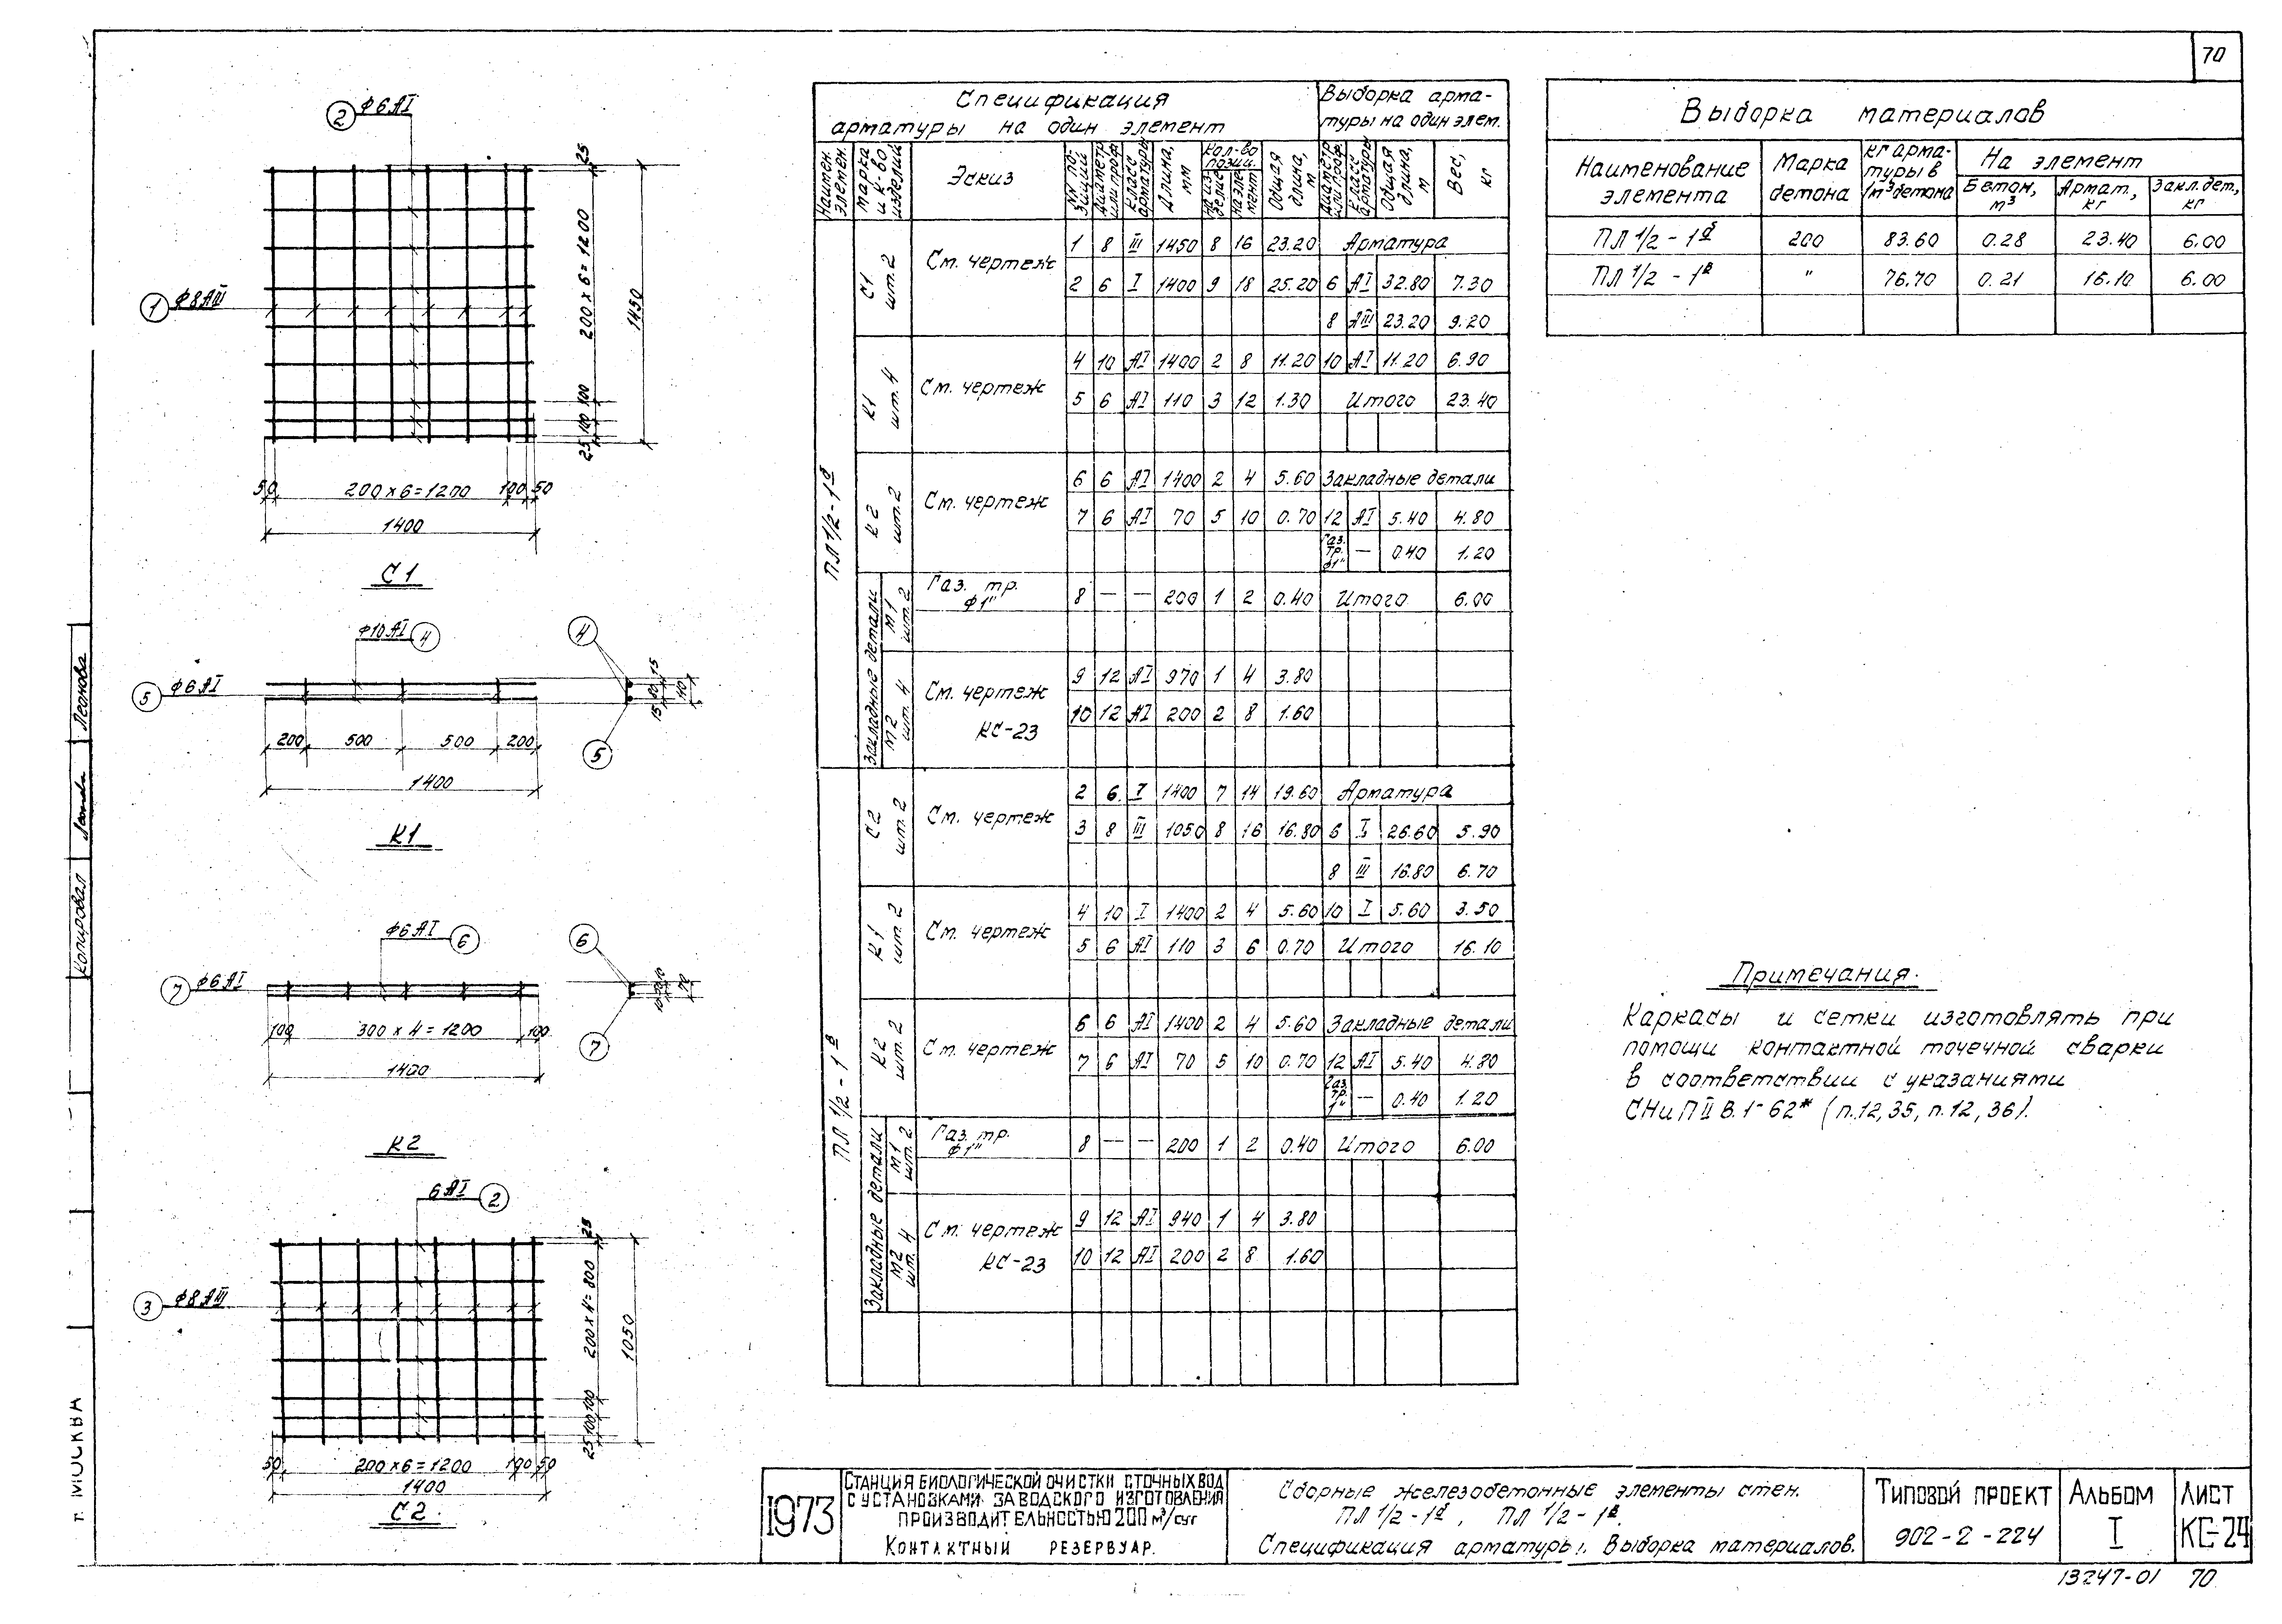 70
② ф6АI
① ф8АIII
25
200 х 6 = 1200
1450
100
100
25
50 200 х 6 = 1200 100 50
1400
С1
ф10АI ④
⑤ ф6АI
④
15
15
40
⑤
200 500 500 200
1400
К1
ф6АI ⑥
⑦ ф6АI
⑥
70
⑦
100 300 х 4 = 1200 100
1400
К2
6АI ②
③ ф8АIII
25
200х4=800
1050
100
100
25
50 200 х 6 = 1200 100 50
1400
С2
Спецификация арматуры на один элемент
Выборка арматуры на один элем.
Наимен. элемен. Марка и к-во изделий Эскиз №№ позиций Диаметр или проф. Класс арматуры Длина, мм Кол-во позиц. На изделие На элемент Общая длина, м Диаметр или проф. Класс арматуры Общая длина, м Вес, кг
ПЛ 1/2-1б
С1 шт.2 См. чертеж
1 8 III 1450 8 16 23.20 Арматура
2 6 I 1400 9 18 25.20 6 АI 32.80 7.30
8 АIII 23.20 9.20
К1 шт.4 См. чертеж
4 10 АI 1400 2 8 11.20 10 АI 11.20 6.90
5 6 АI 110 3 12 1.30 Итого 23.40
К2 шт.2 См. чертеж
6 6 АI 1400 2 4 5.60 Закладные детали
7 6 АI 70 5 10 0.70 12 АI 5.40 4.80
Газ. тр. ф1" — 0.40 1.20
Закладные детали
М1 шт.2 Газ. тр. ф1"
8 — — 200 1 2 0.40 Итого 6.00
М2 шт. 4 См. чертеж КС-23
9 12 АI 970 1 4 3.80
10 12 АI 200 2 8 1.60
ПЛ 1/2 - 1в
С2 шт.2 См. чертеж
2 6 I 1400 7 14 19.60 Арматура
3 8 III 1050 8 16 16.80 6 I 26.60 5.90
8 III 16.80 6.70
К1 шт. 2 См. чертеж
4 10 I 1400 2 4 5.60 10 I 5.60 3.50
5 6 АI 110 3 6 0.70 Итого 16.10
К2 шт.2 См. чертеж
6 6 АI 1400 2 4 5.60 Закладные детали
7 6 АI 70 5 10 0.70 12 АI 5.40 4.80
Газ. тр. 1" — 0.40 1.20
Закладные детали
М1 шт. 2 Газ. тр. ф1"
8 — — 200 1 2 0.40 Итого 6.00
М2 шт. 4 См. чертеж КС-23
9 12 АI 940 1 4 3.80
10 12 АI 200 2 8 1.60
Выборка материалов
Наименование элемента Марка бетона кг арматуры в 1м³ бетона На элемент
Бетон, м³ Армат., кг Закл. дет., кг
ПЛ 1/2 - 1б 200 83.60 0.28 23.40 6.00
ПЛ 1/2 - 1в " 76.70 0.21 16.10 6.00
Примечания.
Каркасы и сетки изготовлять при
помощи контактной точечной сварки
в соответствии с указаниями
СНиП II В.1-62* (п.12,35, п.12,36).
Копировал Леонова
г. МОСКВА
1973
СТАНЦИЯ БИОЛОГИЧЕСКОЙ ОЧИСТКИ СТОЧНЫХ ВОД
С УСТАНОВКАМИ ЗАВОДСКОГО ИЗГОТОВЛЕНИЯ
ПРОИЗВОДИТЕЛЬНОСТЬЮ 200 м³/сут
КОНТАКТНЫЙ РЕЗЕРВУАР.
Сборные железобетонные элементы стен.
ПЛ 1/2 - 1б, ПЛ 1/2 - 1в.
Спецификация арматуры. Выборка материалов.
ТИПОВОЙ ПРОЕКТ
902-2-224
АЛЬБОМ
I
ЛИСТ
КС-24
13247-01 70